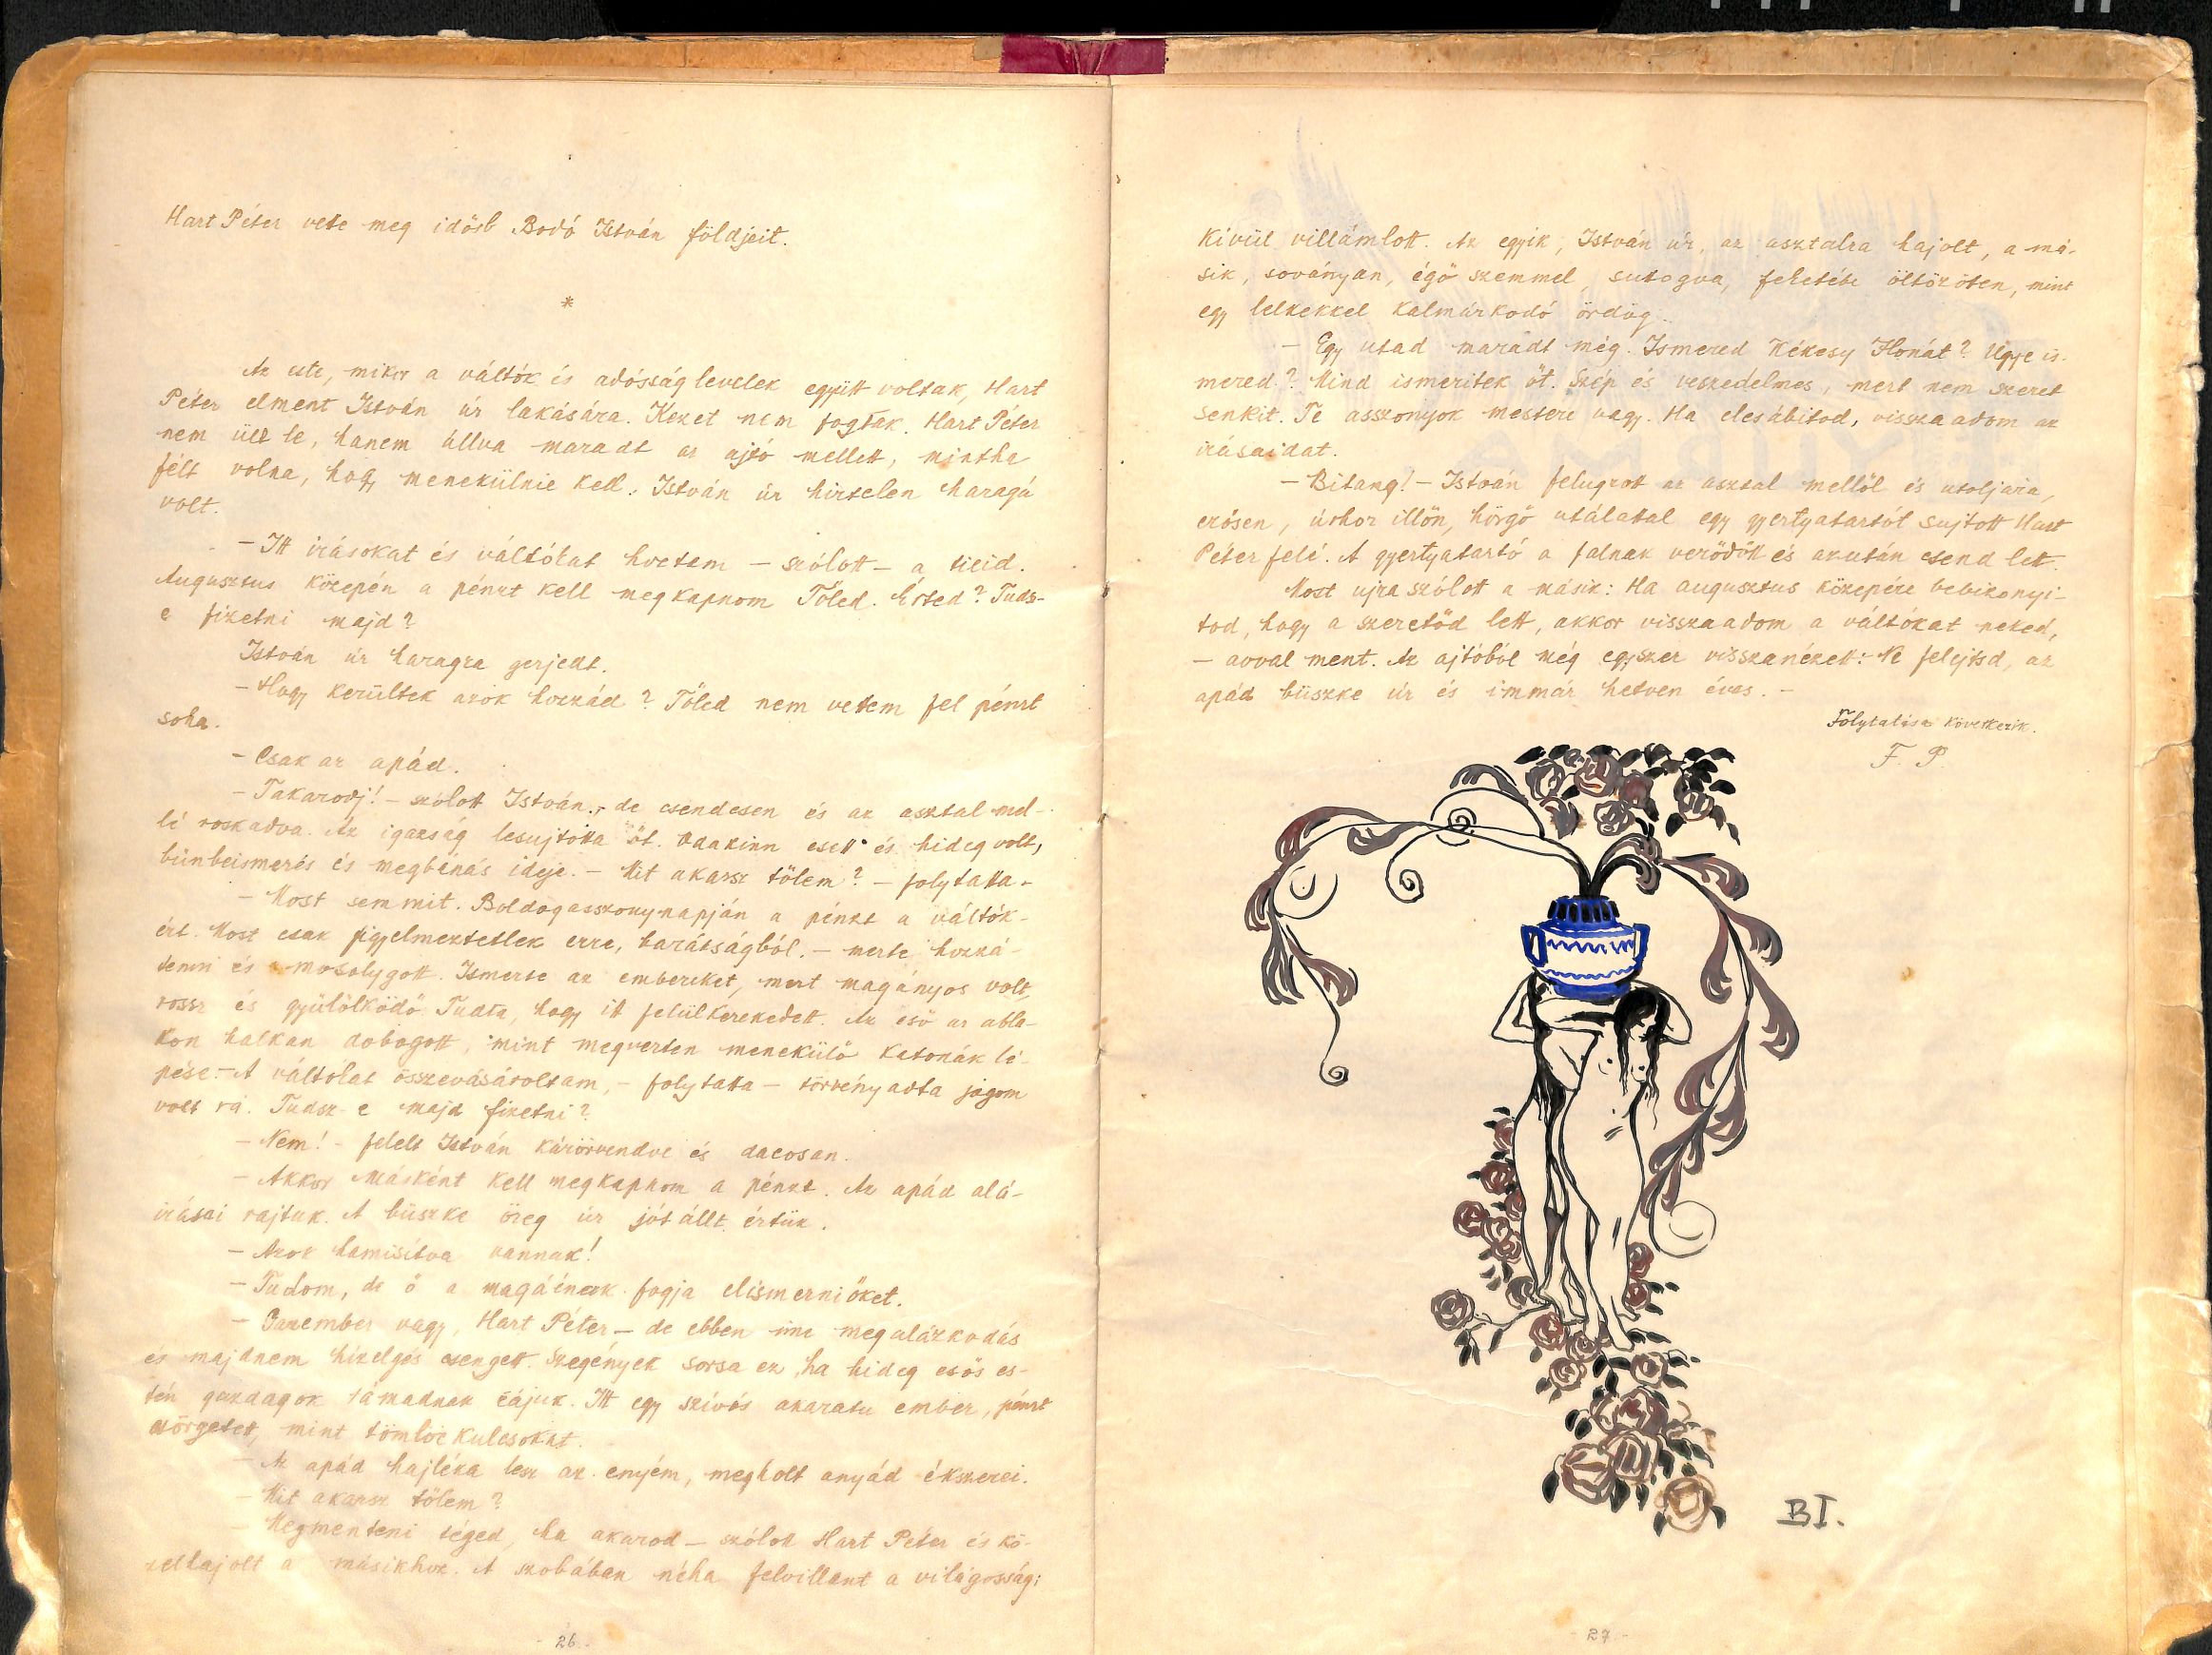 Hart Péter vete meg idősb Bodó István földjeit.
*
Az este, mikor a váltók és adósság levelek együtt voltak, Hart
Péter elment István úr lakására. Kezet nem fogtak. Hart Péter
nem ült le, hanem állva maradt az ajtó mellett, mintha
félt volna, hogy menekülnie kell. István úr hirtelen haragú
volt.
- Itt irásokat és váltókat hoztam - szólott - a tieid.
Augusztus közepén a pénzt kell megkapnom Tőled. Érted? Tuds-
e fizetni majd?
István úr haragra gerjedt.
- Hogy kerültek azok hozzád? Tőled nem vettem fel pénzt
soha.
- Csak az apád.
- Takarodj! - szólott István, - de csendesen és az asztal mel-
lé roskadva. Az igazság lesujtotta őt. Odakinn esett és hideg volt,
bűnbeismerés és megbánás ideje. - Mit akarsz tőlem? - folytatta -
- Most semmit. Boldogasszonynapján a pénzt a váltók-
ért. Most csak figyelmeztetlek erre, barátságból. - merte hozzá-
tenni és mosolygott. Ismerte az embereket, mert magányos volt,
rossz és gyülölködő. Tudta, hogy itt felülkerekedett. Az eső az abla-
kon halkan dobogott, mint megverten menekülő katonák lé-
pése. - A váltókat összevásároltam, - folytatta - törvényadta jogom
volt rá. Tudsz-e majd fizetni?
- Nem! - felelt István kárörvendve és dacosan.
- Akkor másként kell megkapnom a pénzt. Az apád alá-
irásai rajtuk. A büszke öreg úr jótállt értük.
- Azok hamisítva vannak!
- Tudom, de ő a magáénak fogja elismerni őket.
- Gazember vagy, Hart Péter - de ebben ime megalázkodás
és majdnem hizelgés csengett. Szegények sorsa ez, ha hideg esős es-
tén gazdagok támadnak rájuk. Itt egy szívós akaratu ember, pénzt
csörgetett, mint tömlöc kulcsokat.
- Az apád hajléka lesz az enyém, megholt anyád ékszerei.
- Mit akarsz tőlem?
- Megmenteni téged, ha akarod - szólott Hart Péter és kö-
zelhajolt a másikhoz. A szobában néha felvillant a világosság:
26.
Kívül villámlott. Az egyik, István úr, az asztalra hajolt, a má-
sik, soványan, égő szemmel, suttogva, feketébe öltözötten, mint
egy lelkekkel kalmárkodó ördög.
- Egy utad maradt még. Ismered Kékesy Ilonát? Ugye is-
mered? Mind ismeritek őt. Szép és veszedelmes, mert nem szeret
senkit. Te asszonyok mestere vagy. Ha elcsábitod, visszaadom az
irásaidat.
- Bitang! - István felugrott az asztal mellől és utoljára,
erősen, úrhoz illőn, hörgő utálatal egy gyertyatartót sujtott Hart
Péter felé. A gyertyatartó a falnak verődött és azután csend lett.
Most ujra szólott a másik: Ha augusztus közepére bebizonyi-
tod, hogy a szeretőd lett, akkor visszaadom a váltókat neked,
- avval ment. Az ajtóból még egyszer visszanézett: - Ne felejtsd, az
apád büszke úr és immár hetven éves. -
Folytatása következik.
F. P.
BI.
27.